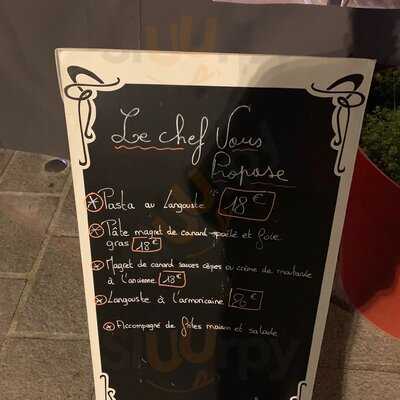 Le chef Vous
Propose
Pasta au Langouste 18€
Pâte magret de canard poêlé et foie
gras 18€
Magret de canard sauces cèpes ou crème de moutarde
à l'ancienne 18€
Langouste à l'armoricaine €
Accompagné de frites maison et salade